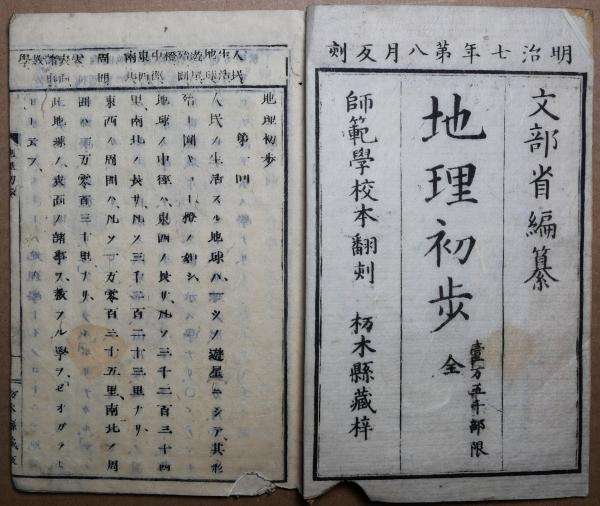 明治七年第八月反刻
文部省編纂
地理初歩 全
壹万五千部限
師範學校本翻刻 栃木縣藏梓
地理初歩
第一回
人民ノ生活スル地球ハ、一ツノ遊星ニシテ、其形
殆ド圓キコト、橙ノ如シ、
地球ノ中徑ハ、東西ノ長サ、凡ソ三千二百三十四
里、南北ノ長サ、凡ソ三千二百二十三里ナリ、
東西ノ周圍ハ、凡ソ一万零百三十五里、南北ノ周
圍ハ、一万零百三十里ナリ、
此地球ノ、表面ノ諸事ヲ、教フル學ヲ、ゼオガラヒ
ート云フ、
栃木縣藏版